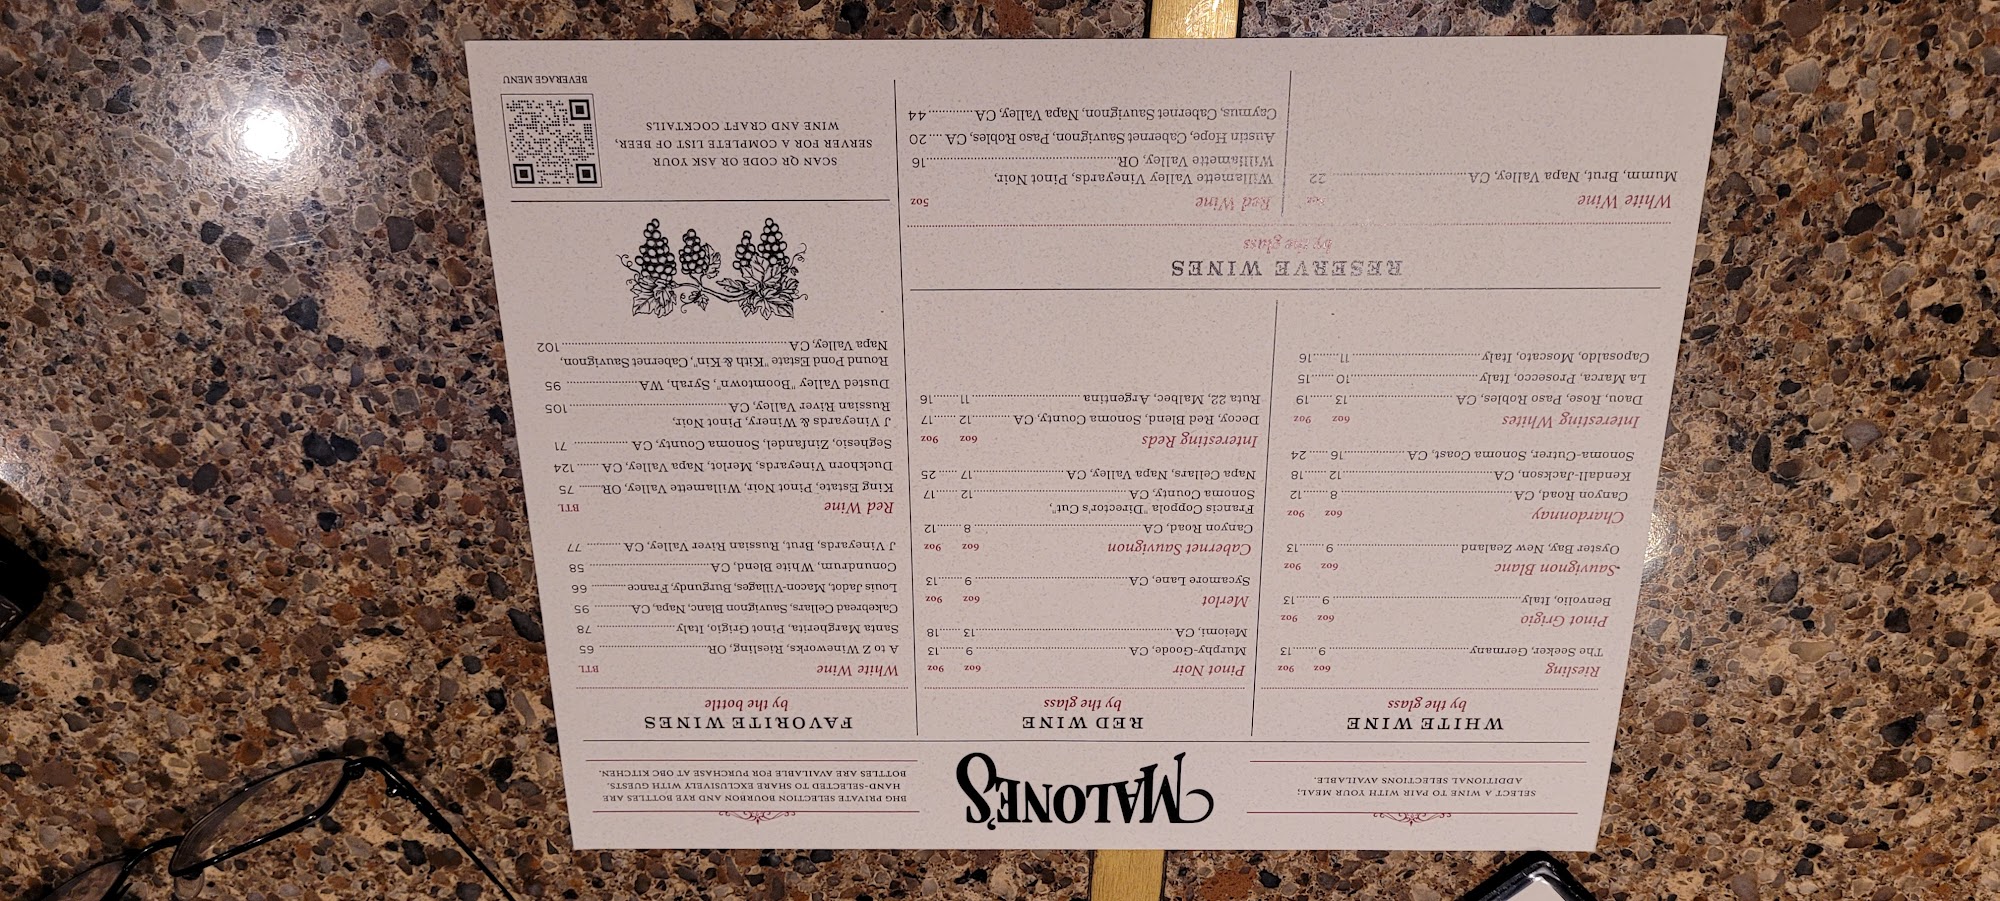 SELECT A WINE TO PAIR WITH YOUR MEAL;
ADDITIONAL SELECTIONS AVAILABLE.
MALONE'S
BHG PRIVATE SELECTION BOURBON AND RYE BOTTLES ARE
HAND-SELECTED TO SHARE EXCLUSIVELY WITH GUESTS.
BOTTLES ARE AVAILABLE FOR PURCHASE AT OBC KITCHEN.
WHITE WINE
by the glass
Riesling 6oz 9oz
The Seeker, Germany 9 13
Pinot Grigio 6oz 9oz
Benvolio, Italy 9 13
Sauvignon Blanc 6oz 9oz
Oyster Bay, New Zealand 9 13
Chardonnay 6oz 9oz
Canyon Road, CA 8 12
Kendall-Jackson, CA 12 18
Sonoma-Cutrer, Sonoma Coast, CA 16 24
Interesting Whites 6oz 9oz
Daou, Rose, Paso Robles, CA 13 19
La Marca, Prosecco, Italy 10 15
Caposaldo, Moscato, Italy 11 16
RED WINE
by the glass
Pinot Noir 6oz 9oz
Murphy-Goode, CA 9 13
Meiomi, CA 13 18
Merlot 6oz 9oz
Sycamore Lane, CA 9 13
Cabernet Sauvignon 6oz 9oz
Canyon Road, CA 8 12
Francis Coppola "Director's Cut",
Sonoma County, CA 12 17
Napa Cellars, Napa Valley, CA 17 25
Interesting Reds 6oz 9oz
Decoy, Red Blend, Sonoma County, CA 12 17
Ruta 22, Malbec, Argentina 11 16
FAVORITE WINES
by the bottle
White Wine BTL
A to Z Wineworks, Riesling, OR 65
Santa Margherita, Pinot Grigio, Italy 78
Cakebread Cellars, Sauvignon Blanc, Napa, CA 95
Louis Jadot, Macon-Villages, Burgundy, France 66
Conundrum, White Blend, CA 58
J Vineyards, Brut, Russian River Valley, CA 77
Red Wine BTL
King Estate, Pinot Noir, Willamette Valley, OR 75
Duckhorn Vineyards, Merlot, Napa Valley, CA 124
Seghesio, Zinfandel, Sonoma County, CA 71
J Vineyards & Winery, Pinot Noir,
Russian River Valley, CA 105
Dusted Valley "Boomtown", Syrah, WA 95
Round Pond Estate "Kith & Kin", Cabernet Sauvignon,
Napa Valley, CA 102
RESERVE WINES
by the glass
White Wine 5oz
Mumm, Brut, Napa Valley, CA 22
Red Wine 5oz
Willamette Valley Vineyards, Pinot Noir,
Williamette Valley, OR 16
Austin Hope, Cabernet Sauvignon, Paso Robles, CA 20
Caymus, Cabernet Sauvignon, Napa Valley, CA 44
SCAN QR CODE OR ASK YOUR
SERVER FOR A COMPLETE LIST OF BEER,
WINE AND CRAFT COCKTAILS
BEVERAGE MENU